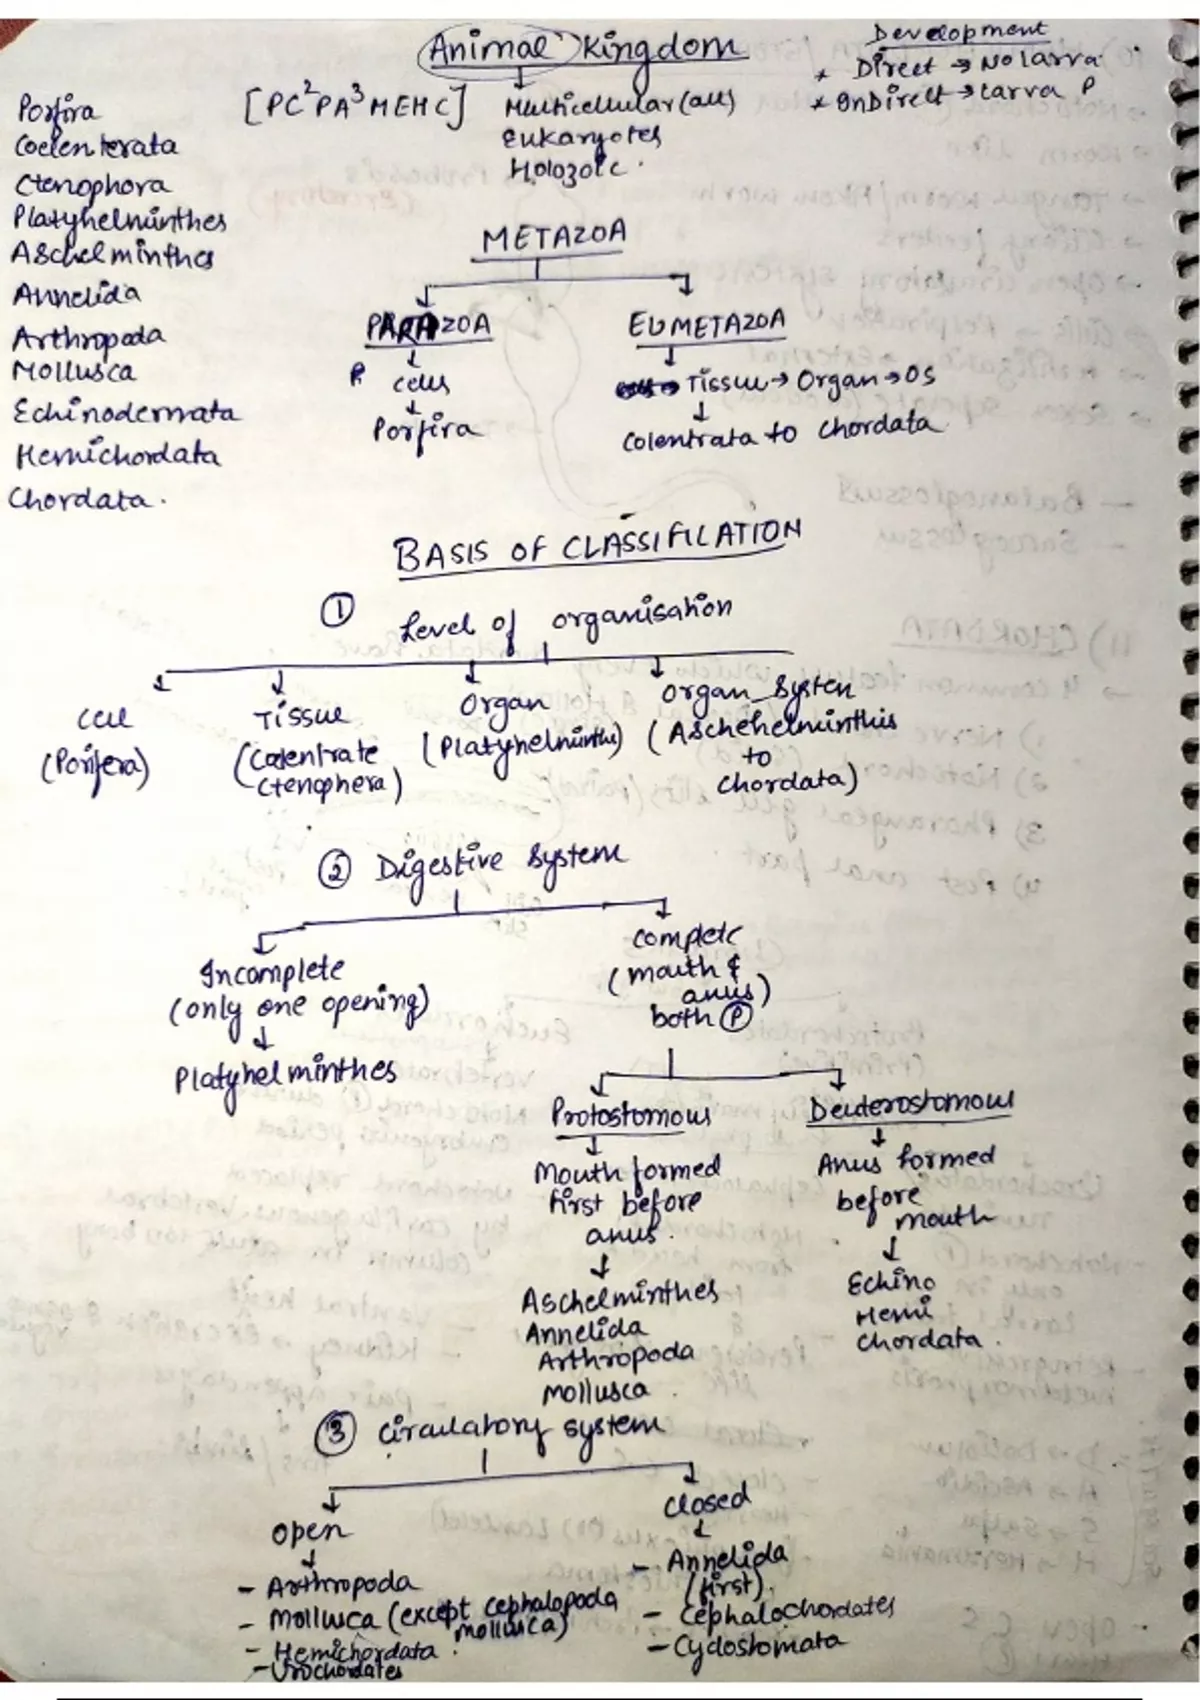 Animal Kingdom
Development
* Direct → No larva
* InDirect → Larva P
[PC²PA³MEHC]
Multicellular (all)
Eukaryotes
Holozoic.
Porfira
Coelenterata
Ctenophora
Platyhelminthes
Aschelminthes
Annelida
Arthropoda
Mollusca
Echinodermata
Hemichordata
Chordata.
METAZOA
PARAZOA
EUMETAZOA
cells
Tissue → Organ → OS
Porfira
Colentrata to Chordata
BASIS OF CLASSIFICATION
① Level of organisation
Cell
(Porifera)
Tissue
(Coelentrate
Ctenophera)
Organ
(Platyhelminthes)
Organ System
(Aschehelminthis
to
Chordata)
② Digestive System
Incomplete
(only one opening)
Platyhelminthes
Complete
(mouth &
anus)
both Ⓟ
Protostomous
Deuterostomous
Mouth formed
first before
anus.
Anus formed
before
mouth
Aschelminthes
Annelida
Arthropoda
Mollusca.
Echino
Hemi
Chordata.
③ Circulatory system
Open
- Arthropoda
- Mollusca (except Cephalopoda
mollusca)
- Hemichordata.
- Urochordates
Closed
- Annelida
(first).
- Cephalochordates
- Cyclostomata